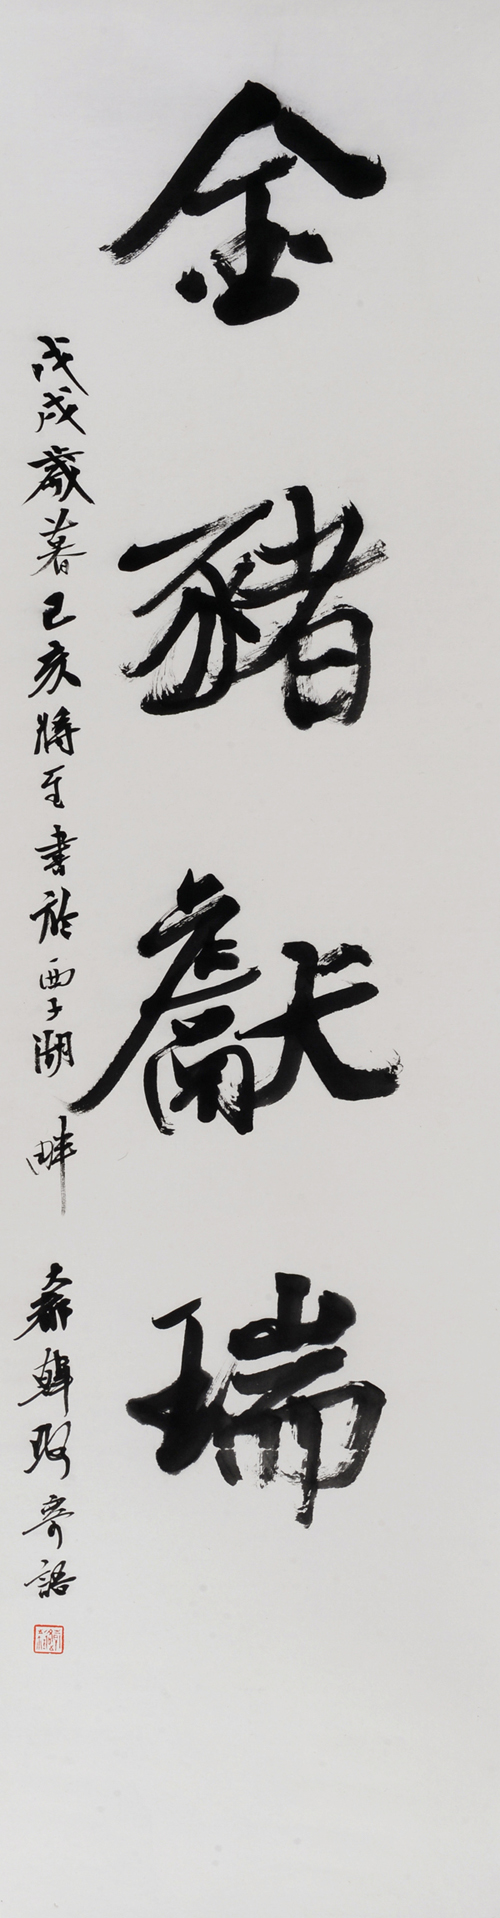 金豬獻瑞
戊戌歲暮己亥將至書於西子湖畔
大都韓 寄語